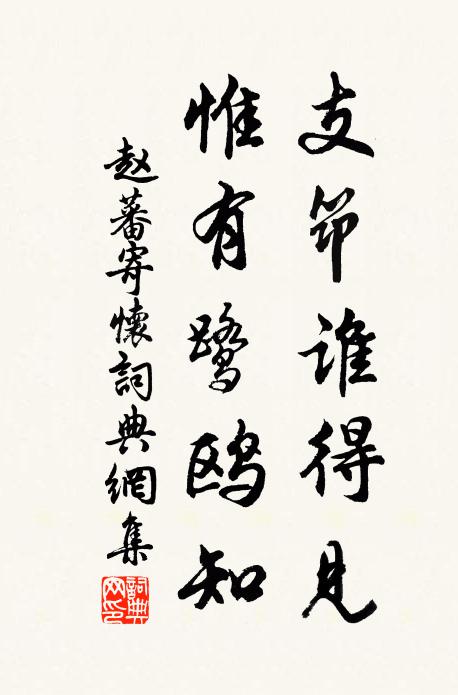 支笻誰得見
惟有鷺鷗知
赵蕃寄懷詞典網集
詞典
网印